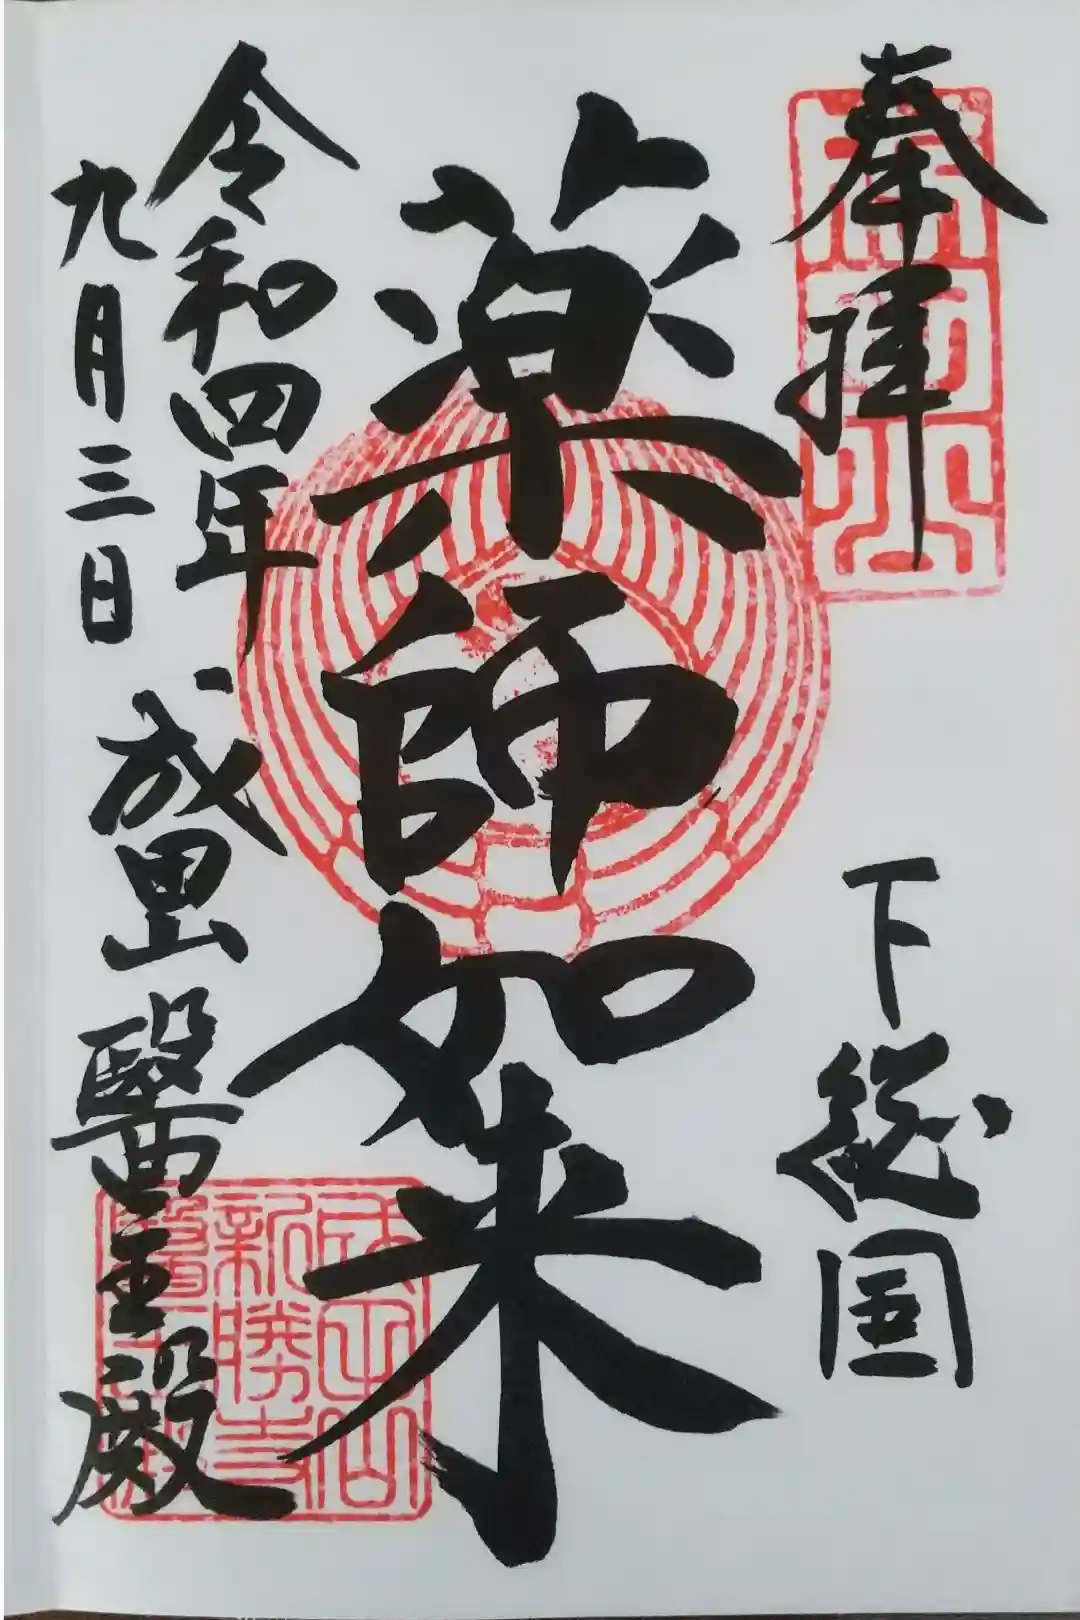 奉拝
下総国
薬師如来
令和四年
九月三日
成田山 醫王殿
成田山
新勝寺
醫王殿